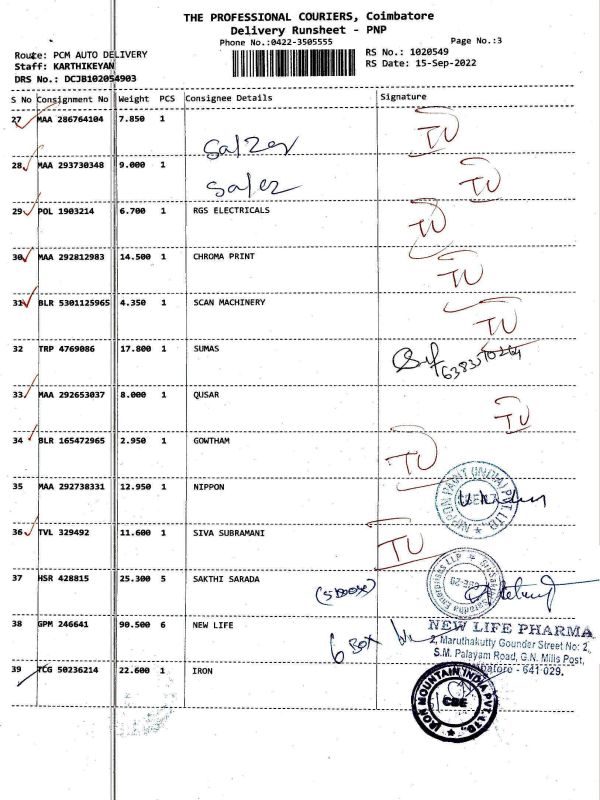 THE PROFESSIONAL COURIERS, Coimbatore
Delivery Runsheet - PNP
Phone No.:0422-3505555 Page No.:3
Route: PCM AUTO DELIVERY RS No.: 1020549
Staff: KARTHIKEYAN RS Date: 15-Sep-2022
DRS No.: DCJB102054903
S No Consignment No Weight PCS Consignee Details Signature
27 MAA 286764104 7.850 1 Salzer TU
28 MAA 293730348 9.000 1 TU
29 POL 1903214 6.700 1 RGS ELECTRICALS TU
30 MAA 292812983 14.500 1 CHROMA PRINT TU
31 BLR 5301125965 4.350 1 SCAN MACHINERY TU
32 TRP 4769086 17.800 1 SUMAS
33 MAA 292653037 8.000 1 QUSAR TU
34 BLR 165472965 2.950 1 GOWTHAM TU
35 MAA 292738331 12.950 1 NIPPON
NIPPON PAINT (INDIA) PVT. LTD.
36 TVL 329492 11.600 1 SIVA SUBRAMANI TU
37 HSR 428815 25.300 5 SAKTHI SARADA
38 GPM 246641 90.500 6 NEW LIFE 6 Box
NEW LIFE PHARMA
2, Maruthakutty Gounder Street No: 2,
S.M. Palayam Road, G.N. Mills Post,
Coimbatore - 641 029.
39 TCG 50236214 22.600 1 IRON
IRON MOUNTAIN INDIA PVT. LTD.
CBE